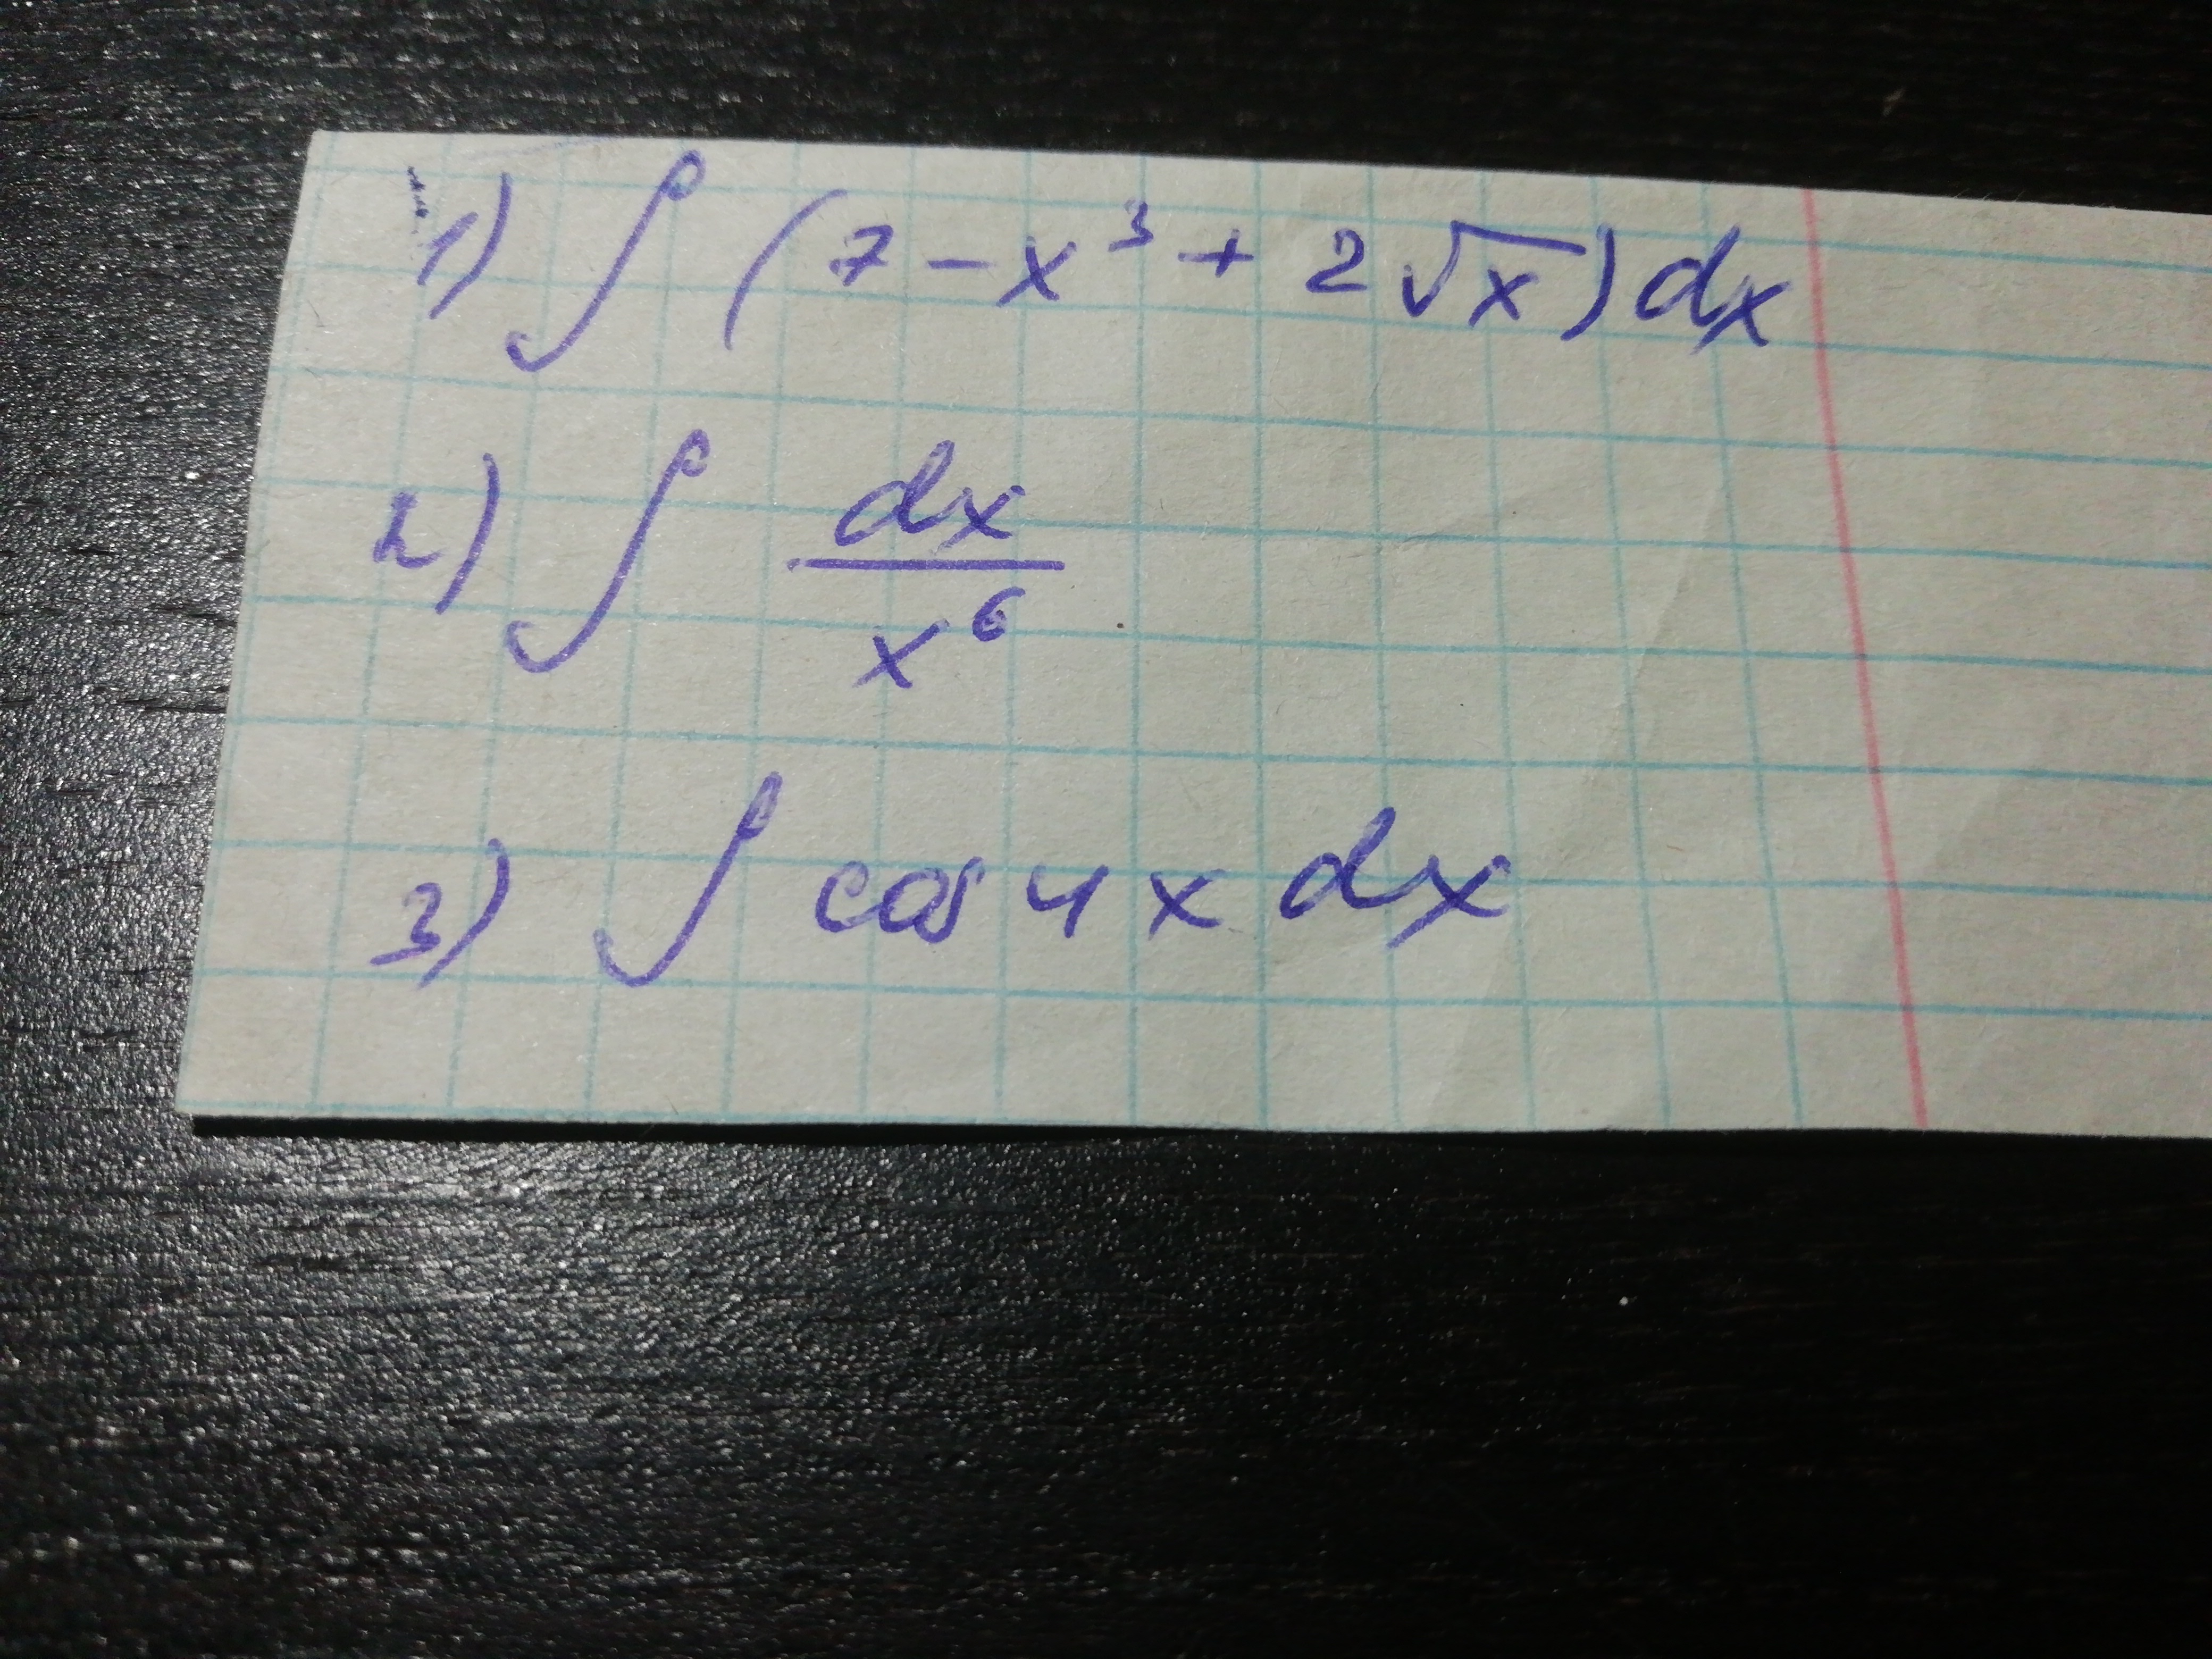 1) ∫ (7 - x³ + 2√x) dx
2) ∫ dx/x⁶
3) ∫ cos 4x dx